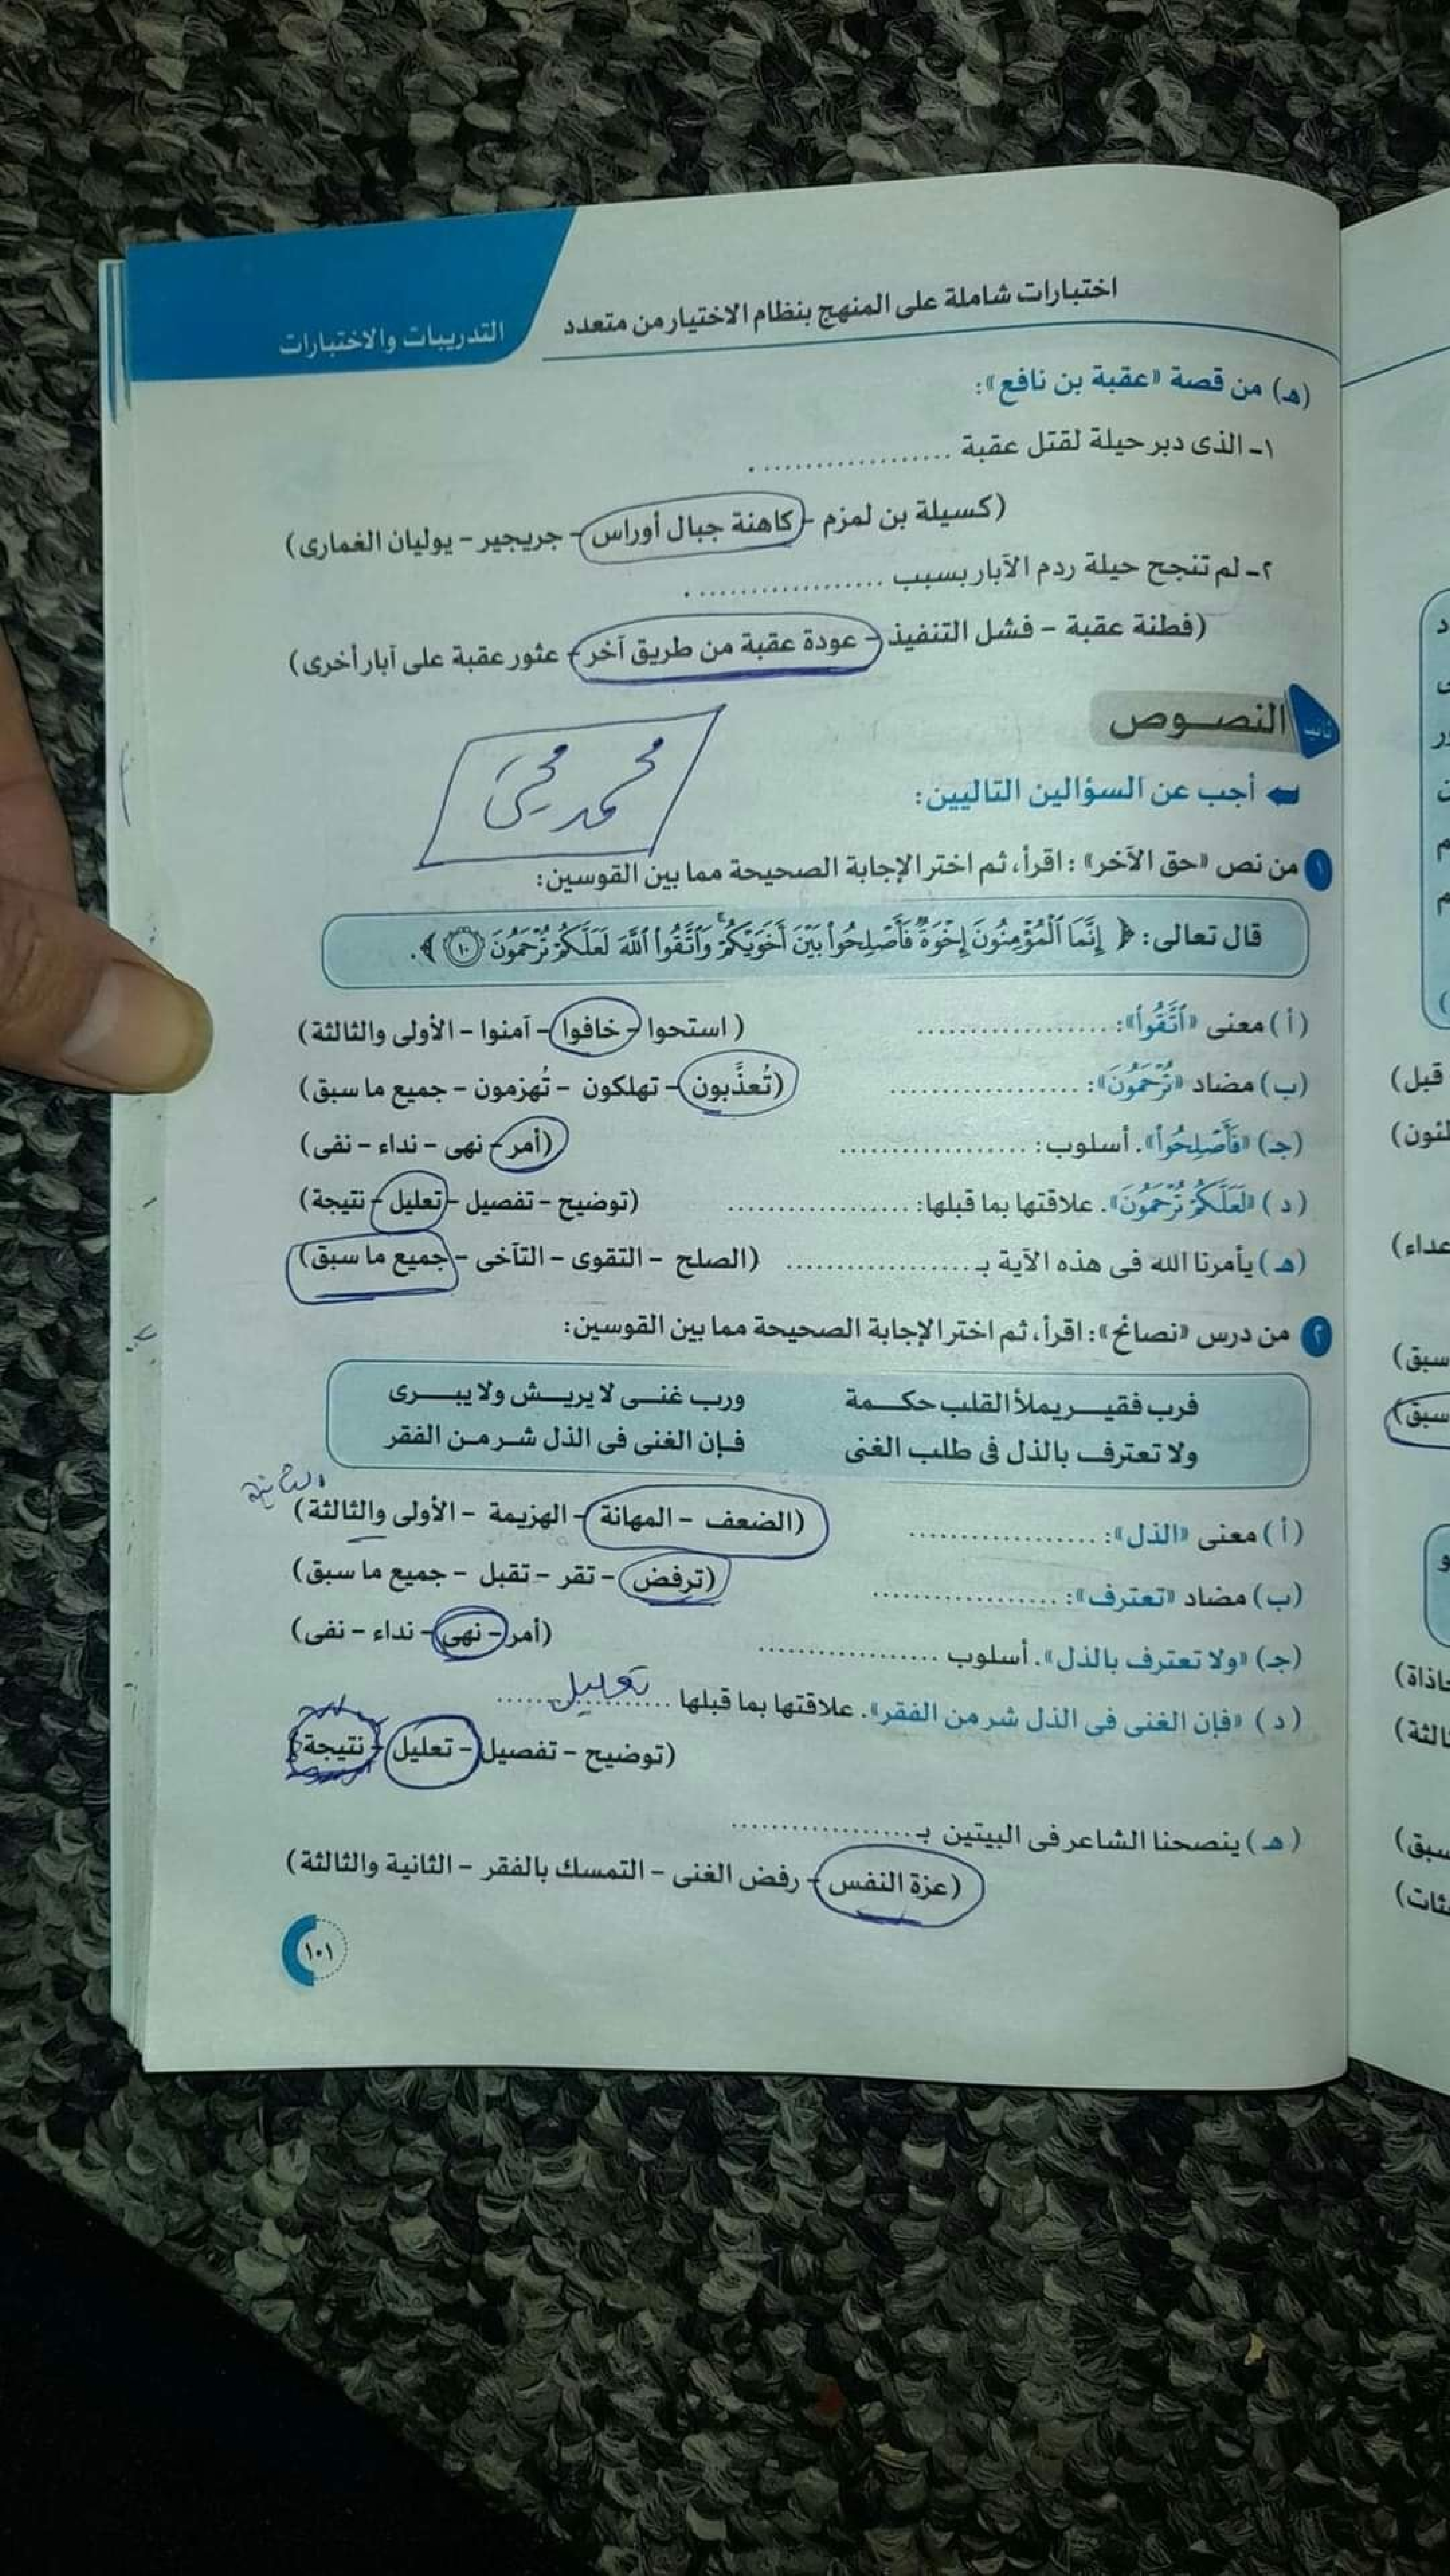 اختبارات شاملة على المنهج بنظام الاختيار من متعدد
التدريبات والاختبارات
(هـ) من قصة «عقبة بن نافع»:
١- الذى دبر حيلة لقتل عقبة ...................
(كسيلة بن لمزم - كاهنة جبال أوراس - جريجير - يوليان الغمارى)
٢- لم تنجح حيلة ردم الآبار بسبب ...................
(فطنة عقبة - فشل التنفيذ - عودة عقبة من طريق آخر - عثور عقبة على آبار أخرى)
ثانيا النصوص
محمد محيى
أجب عن السؤالين التاليين:
١ من نص «حق الآخر»: اقرأ، ثم اختر الإجابة الصحيحة مما بين القوسين:
قال تعالى: ﴿ إِنَّمَا ٱلْمُؤْمِنُونَ إِخْوَةٌ فَأَصْلِحُوا۟ بَيْنَ أَخَوَيْكُمْ ۚ وَٱتَّقُوا۟ ٱللَّهَ لَعَلَّكُمْ تُرْحَمُونَ ١٠ ﴾.
(أ) معنى «ٱتَّقُوا۟»: ................... (استحوا - خافوا - آمنوا - الأولى والثالثة)
(ب) مضاد «تُرْحَمُونَ»: ................... (تُعذَّبون - تهلكون - تُهزمون - جميع ما سبق)
(جـ) «فَأَصْلِحُوا۟». أسلوب: ................... (أمر - نهى - نداء - نفى)
(د) «لَعَلَّكُمْ تُرْحَمُونَ». علاقتها بما قبلها: ................... (توضيح - تفصيل - تعليل - نتيجة)
(هـ) يأمرنا الله فى هذه الآية بـ ................... (الصلح - التقوى - التآخى - جميع ما سبق)
٢ من درس «نصائح»: اقرأ، ثم اختر الإجابة الصحيحة مما بين القوسين:
فرب فقيــر يملأ القلب حكــمة ورب غنــى لا يريــش ولا يبــرى
ولا تعترف بالذل فى طلب الغنى فــإن الغنى فى الذل شــر مــن الفقر
الثانية
(أ) معنى «الذل»: ................... (الضعف - المهانة - الهزيمة - الأولى والثالثة)
(ب) مضاد «تعترف»: ................... (ترفض - تقر - تقبل - جميع ما سبق)
(جـ) «ولا تعترف بالذل». أسلوب ................... (أمر - نهى - نداء - نفى)
(د) «فإن الغنى فى الذل شر من الفقر». علاقتها بما قبلها ......تعليل......
(توضيح - تفصيل - تعليل - نتيجة)
(هـ) ينصحنا الشاعر فى البيتين بـ ...................
(عزة النفس - رفض الغنى - التمسك بالفقر - الثانية والثالثة)
١٠١
قبل)
سبق)
سبق)